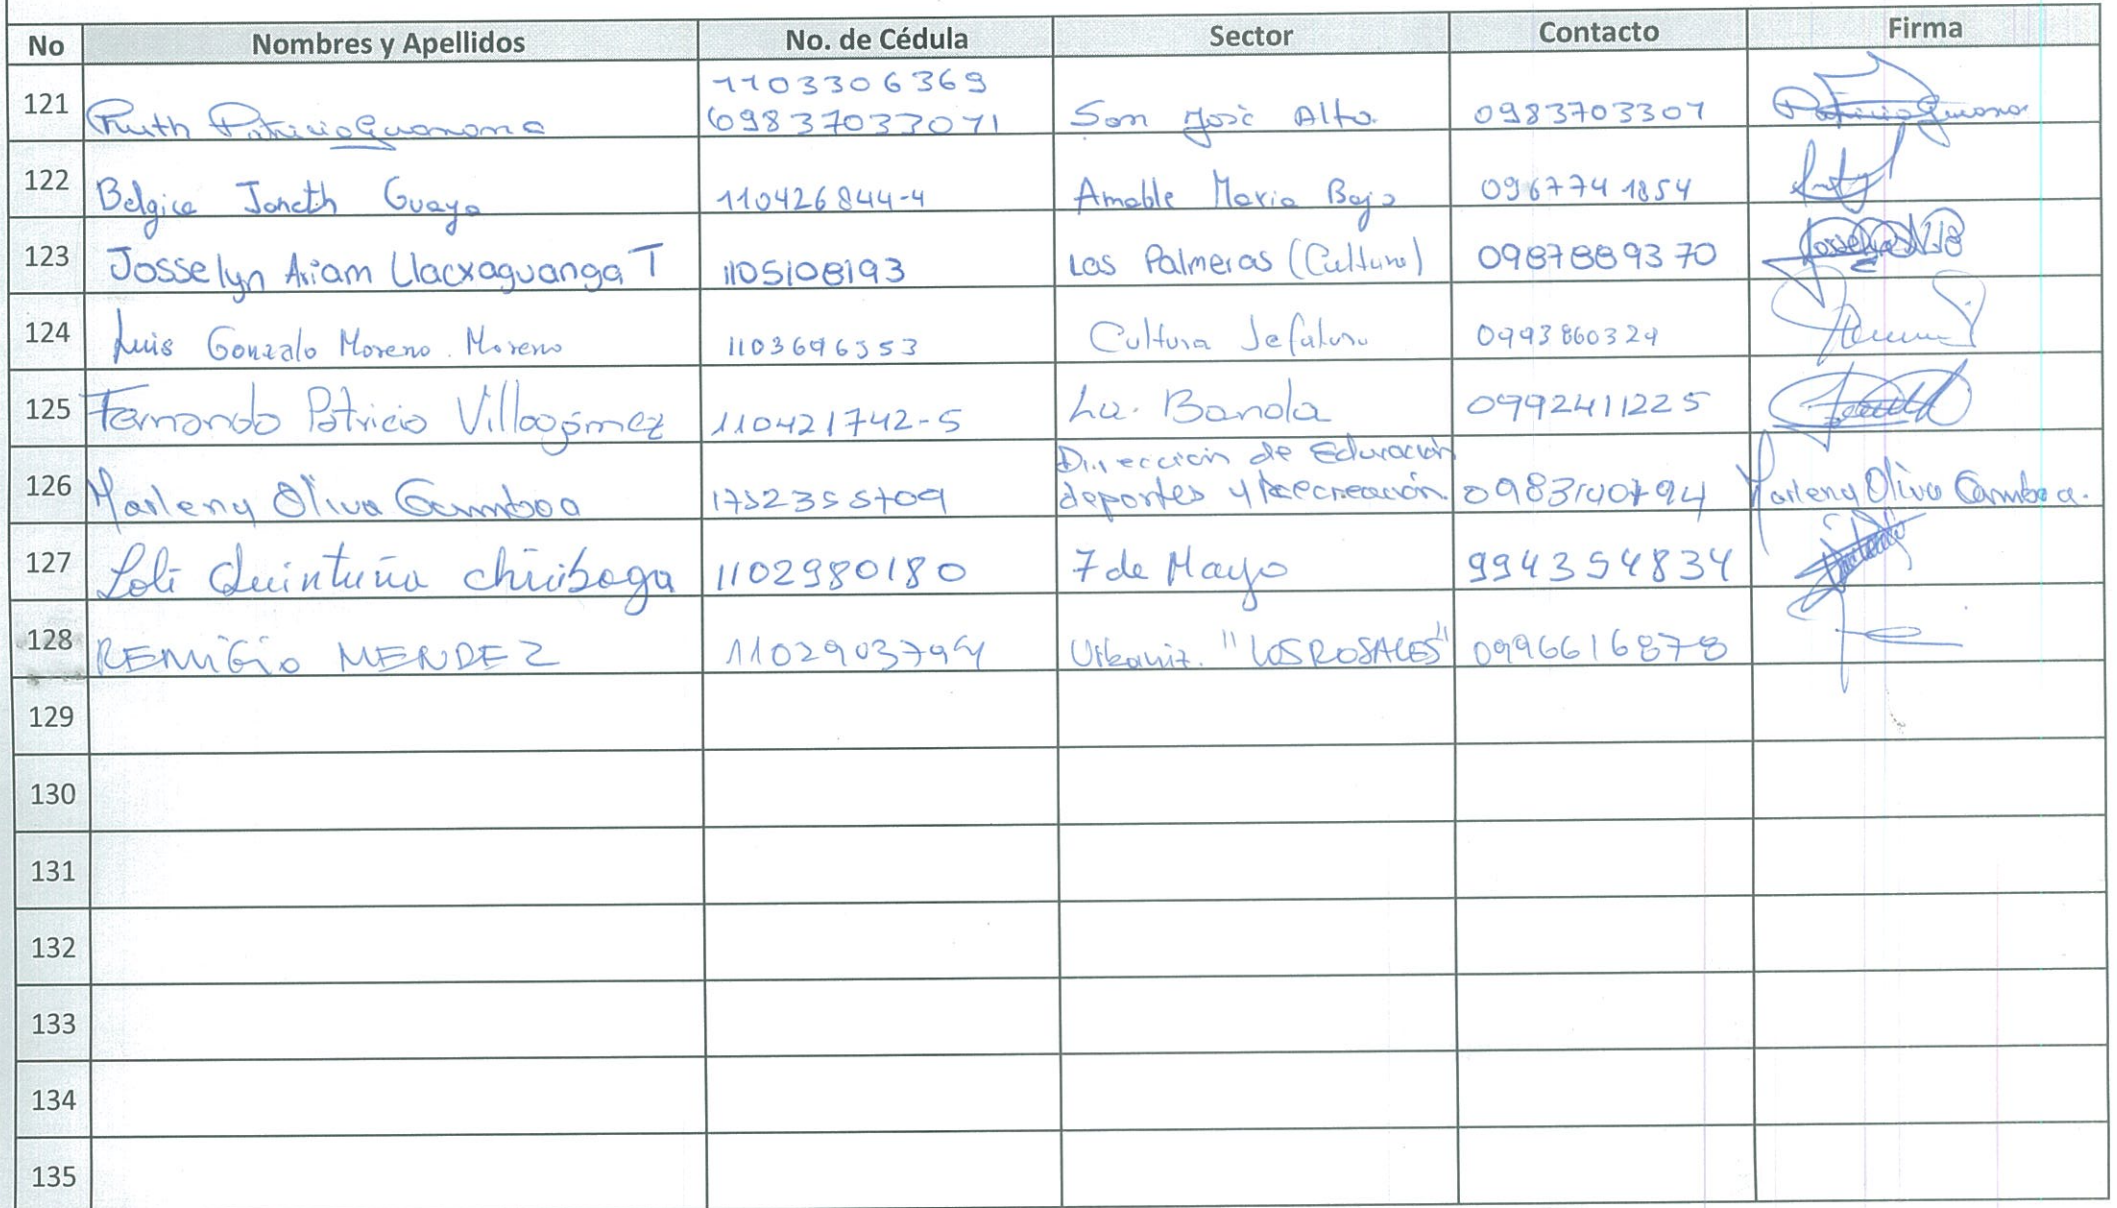 No Nombres y Apellidos No. de Cédula Sector Contacto Firma
1103306369
121 Ruth Patricia Guamana 69837033071 San José Alto. 0983703307 Patricia
122 Belgica Janeth Guaya 110426844-4 Amable Maria Bajo 0967741854
123 Josselyn Ariam Llacxaguanga T 1105108193 Las Palmeras (Cultura) 0987889370
124 Luis Gonzalo Moreno Moreno 1103696353 Cultura Jefatura 0993860324
125 Fernando Patricio Villagómez 110421742-5 La. Banda 0992411225
Dirección de Educación
126 Marleny Oliva Gamboa 1752355709 deportes y Recreación. Marleny Oliva Gamboa.
127 Loli Quintuña chiriboga 1102980180 7 de Mayo 994354834
128 REMIGIO MENDEZ 1102903794 Urbaniz. "LOS ROSALES" 0996616878
129
130
131
132
133
134
135